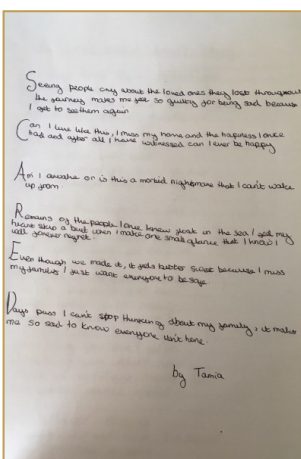 Seeing people cry about the loved ones they lost throughout
the journey makes me feel so guilty for being sad because
I get to see them again
Can I live like this, I miss my home and the happiness I once
had and after all I have witnessed can I ever be happy
Am I awake or is this a morbid nightmare that I can't wake
up from
Remains of the people I once knew float in the sea I feel my
heart skip a beat when I make one small glance that I know I
will forever regret.
Even though we made it, it feels bitter sweet because I miss
my family I just want everyone to be safe
Days pass I can't stop thinking about my family, it makes
me so sad to know everyone isn't here.
by Tamia